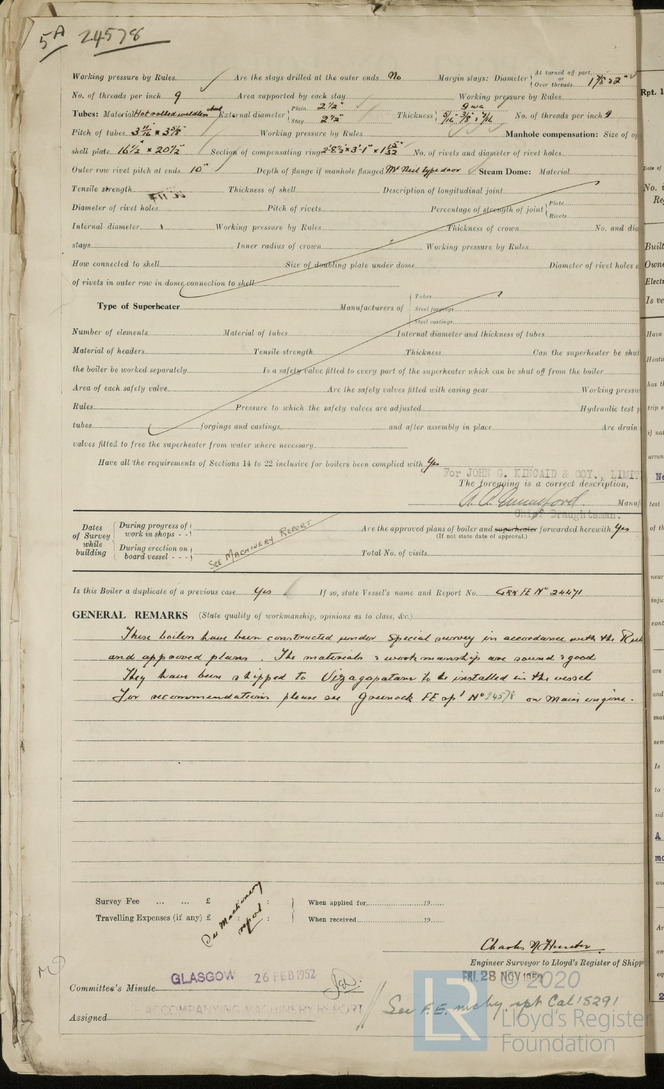 5A 24578
Working pressure by Rules Are the stays drilled at the outer ends No Margin stays: Diameter At turned off part or Over threads
No. of threads per inch 9 Area supported by each stay Working pressure by Rules
Tubes: Material Hot rolled weldless steel External diameter Plain 2½" Stay 2½" Thickness 9 wg 5/16" 3/8" & 7/16 No. of threads per inch 9
Pitch of tubes Working pressure by Rules Manhole compensation: Size of op
shell plate 16½" × 20½" Section of compensating ring No. of rivets and diameter of rivet holes
Outer row rivet pitch at ends 10" Depth of flange if manhole flanged Mc Neil type door Steam Dome: Material
Tensile strength Thickness of shell Description of longitudinal joint
Diameter of rivet holes Pitch of rivets Percentage of strength of joint Plate Rivets
Internal diameter Working pressure by Rules Thickness of crown No. and dia
stays Inner radius of crown Working pressure by Rules
How connected to shell Size of doubling plate under dome Diameter of rivet holes a
of rivets in outer row in dome connection to shell
Type of Superheater Manufacturers of Tubes Steel forgings Steel castings
Number of elements Material of tubes Internal diameter and thickness of tubes
Material of headers Tensile strength Thickness Can the superheater be shut
the boiler be worked separately Is a safety valve fitted to every part of the superheater which can be shut off from the boiler
Area of each safety valve Are the safety valves fitted with easing gear Working pressu
Rules Pressure to which the safety valves are adjusted Hydraulic test p
tubes forgings and castings and after assembly in place Are drain
valves fitted to free the superheater from water where necessary
Have all the requirements of Sections 14 to 22 inclusive for boilers been complied with Yes
For JOHN G. KINCAID & COY., LIMIT
The foregoing is a correct description,
Manuf
Chief Draughtsman.
Dates of Survey while building
During progress of work in shops - -
During erection on board vessel - - -
See Machinery Report
Are the approved plans of boiler and superheater forwarded herewith Yes
(If not state date of approval.)
Total No. of visits
Is this Boiler a duplicate of a previous case Yes If so, state Vessel's name and Report No. GRK FE No 24471
GENERAL REMARKS (State quality of workmanship, opinions as to class, &c.)
These boilers have been constructed under Special survey in accordance with the Rule
and approved plans. The materials & workmanship are sound & good
They have been shipped to Vizagapatam to be installed in the vessel
For recommendations please see Greenock FE rpt No 24578 on Main engine.
Survey Fee ... ... £ : : When applied for 19
Travelling Expenses (if any) £ : : When received 19
See Machinery report
Charles McHunter
Engineer Surveyor to Lloyd's Register of Shipp
Committee's Minute GLASGOW 26 FEB 1952
FRI. 28 NOV 1952
Assigned ACCOMPANYING MACHINERY REPORT
See F.E. mchy. rpt Cal 15291
LR
© 2020
Lloyd's Register
Foundation
Rpt. 1